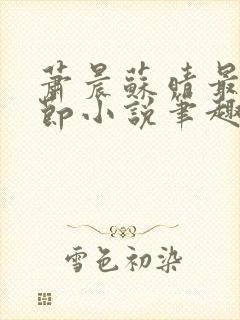 蕭晨蘇晴最
節小說筆趣
雪色初染